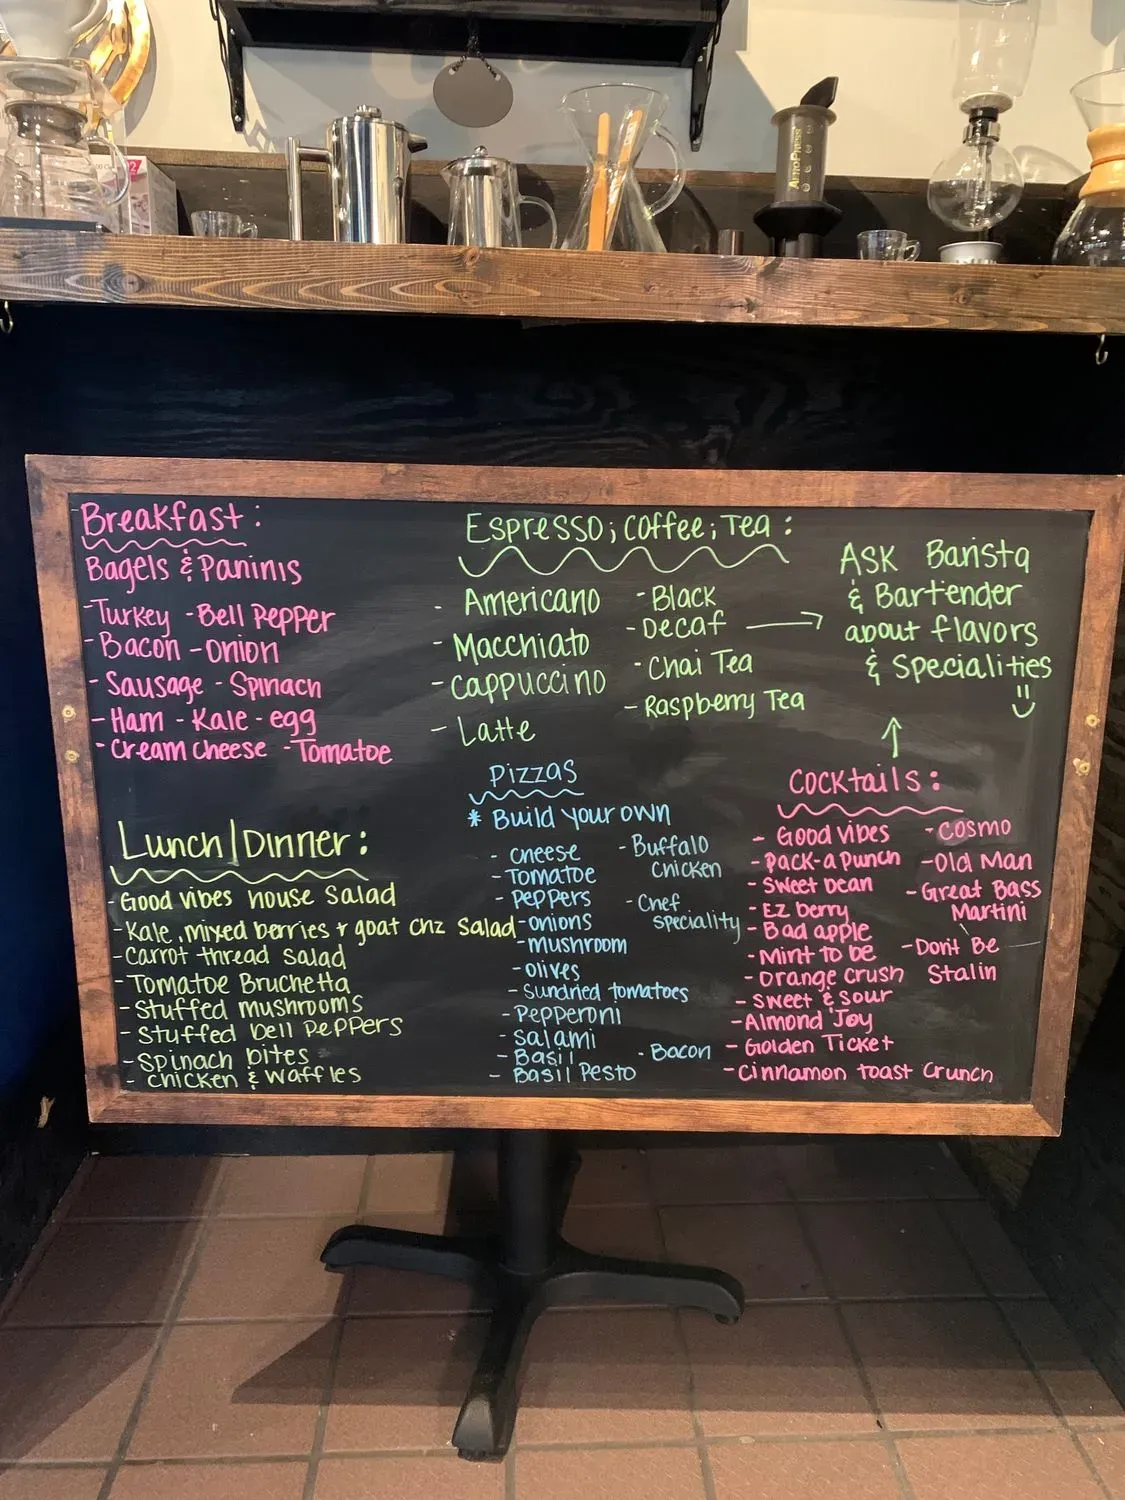 Breakfast:
Bagels & Paninis
-Turkey -Bell Pepper
-Bacon -onion
-Sausage -Spinach
-Ham -Kale -egg
-Cream cheese -Tomatoe
Espresso; Coffee; Tea:
- Americano
- Macchiato
- Cappuccino
- Latte
-Black
-Decaf
-Chai Tea
-Raspberry Tea
ASK Barista
& Bartender
about flavors
& Specialities
Lunch/Dinner:
-Good vibes house Salad
-Kale, mixed berries + goat chz Salad
-Carrot thread Salad
-Tomatoe Bruchetta
-Stuffed mushrooms
-Stuffed bell Peppers
-Spinach bites
- chicken & Waffles
Pizzas
* Build your own
- cheese
-Tomatoe
-Peppers
-onions
-mushroom
-olives
-Sundried tomatoes
-Pepperoni
-Salami
-Basil
- Basil Pesto
-Buffalo
Chicken
-Chef
Speciality
-Bacon
Cocktails:
- Good vibes
-Pack-a Punch
-Sweet bean
-Ez berry
-Bad apple
-Mint to be
-Orange Crush
-Sweet & Sour
-Almond Joy
-Golden Ticket
-Cinnamon toast Crunch
-Cosmo
-Old Man
-Great Bass
Martini
-Dont Be
Stalin
AEROPRESS